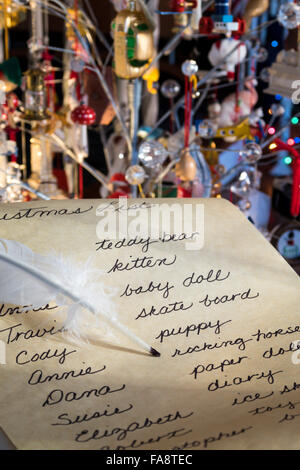 Christmas List
teddy bear
kitten
baby doll
skate board
puppy
rocking horse
paper doll
diary
ice
Annie
Travis
Cody
Annie
Dana
Susie
Elizabeth
Robert
alamy
Image ID: FA8TEC
www.alamy.com